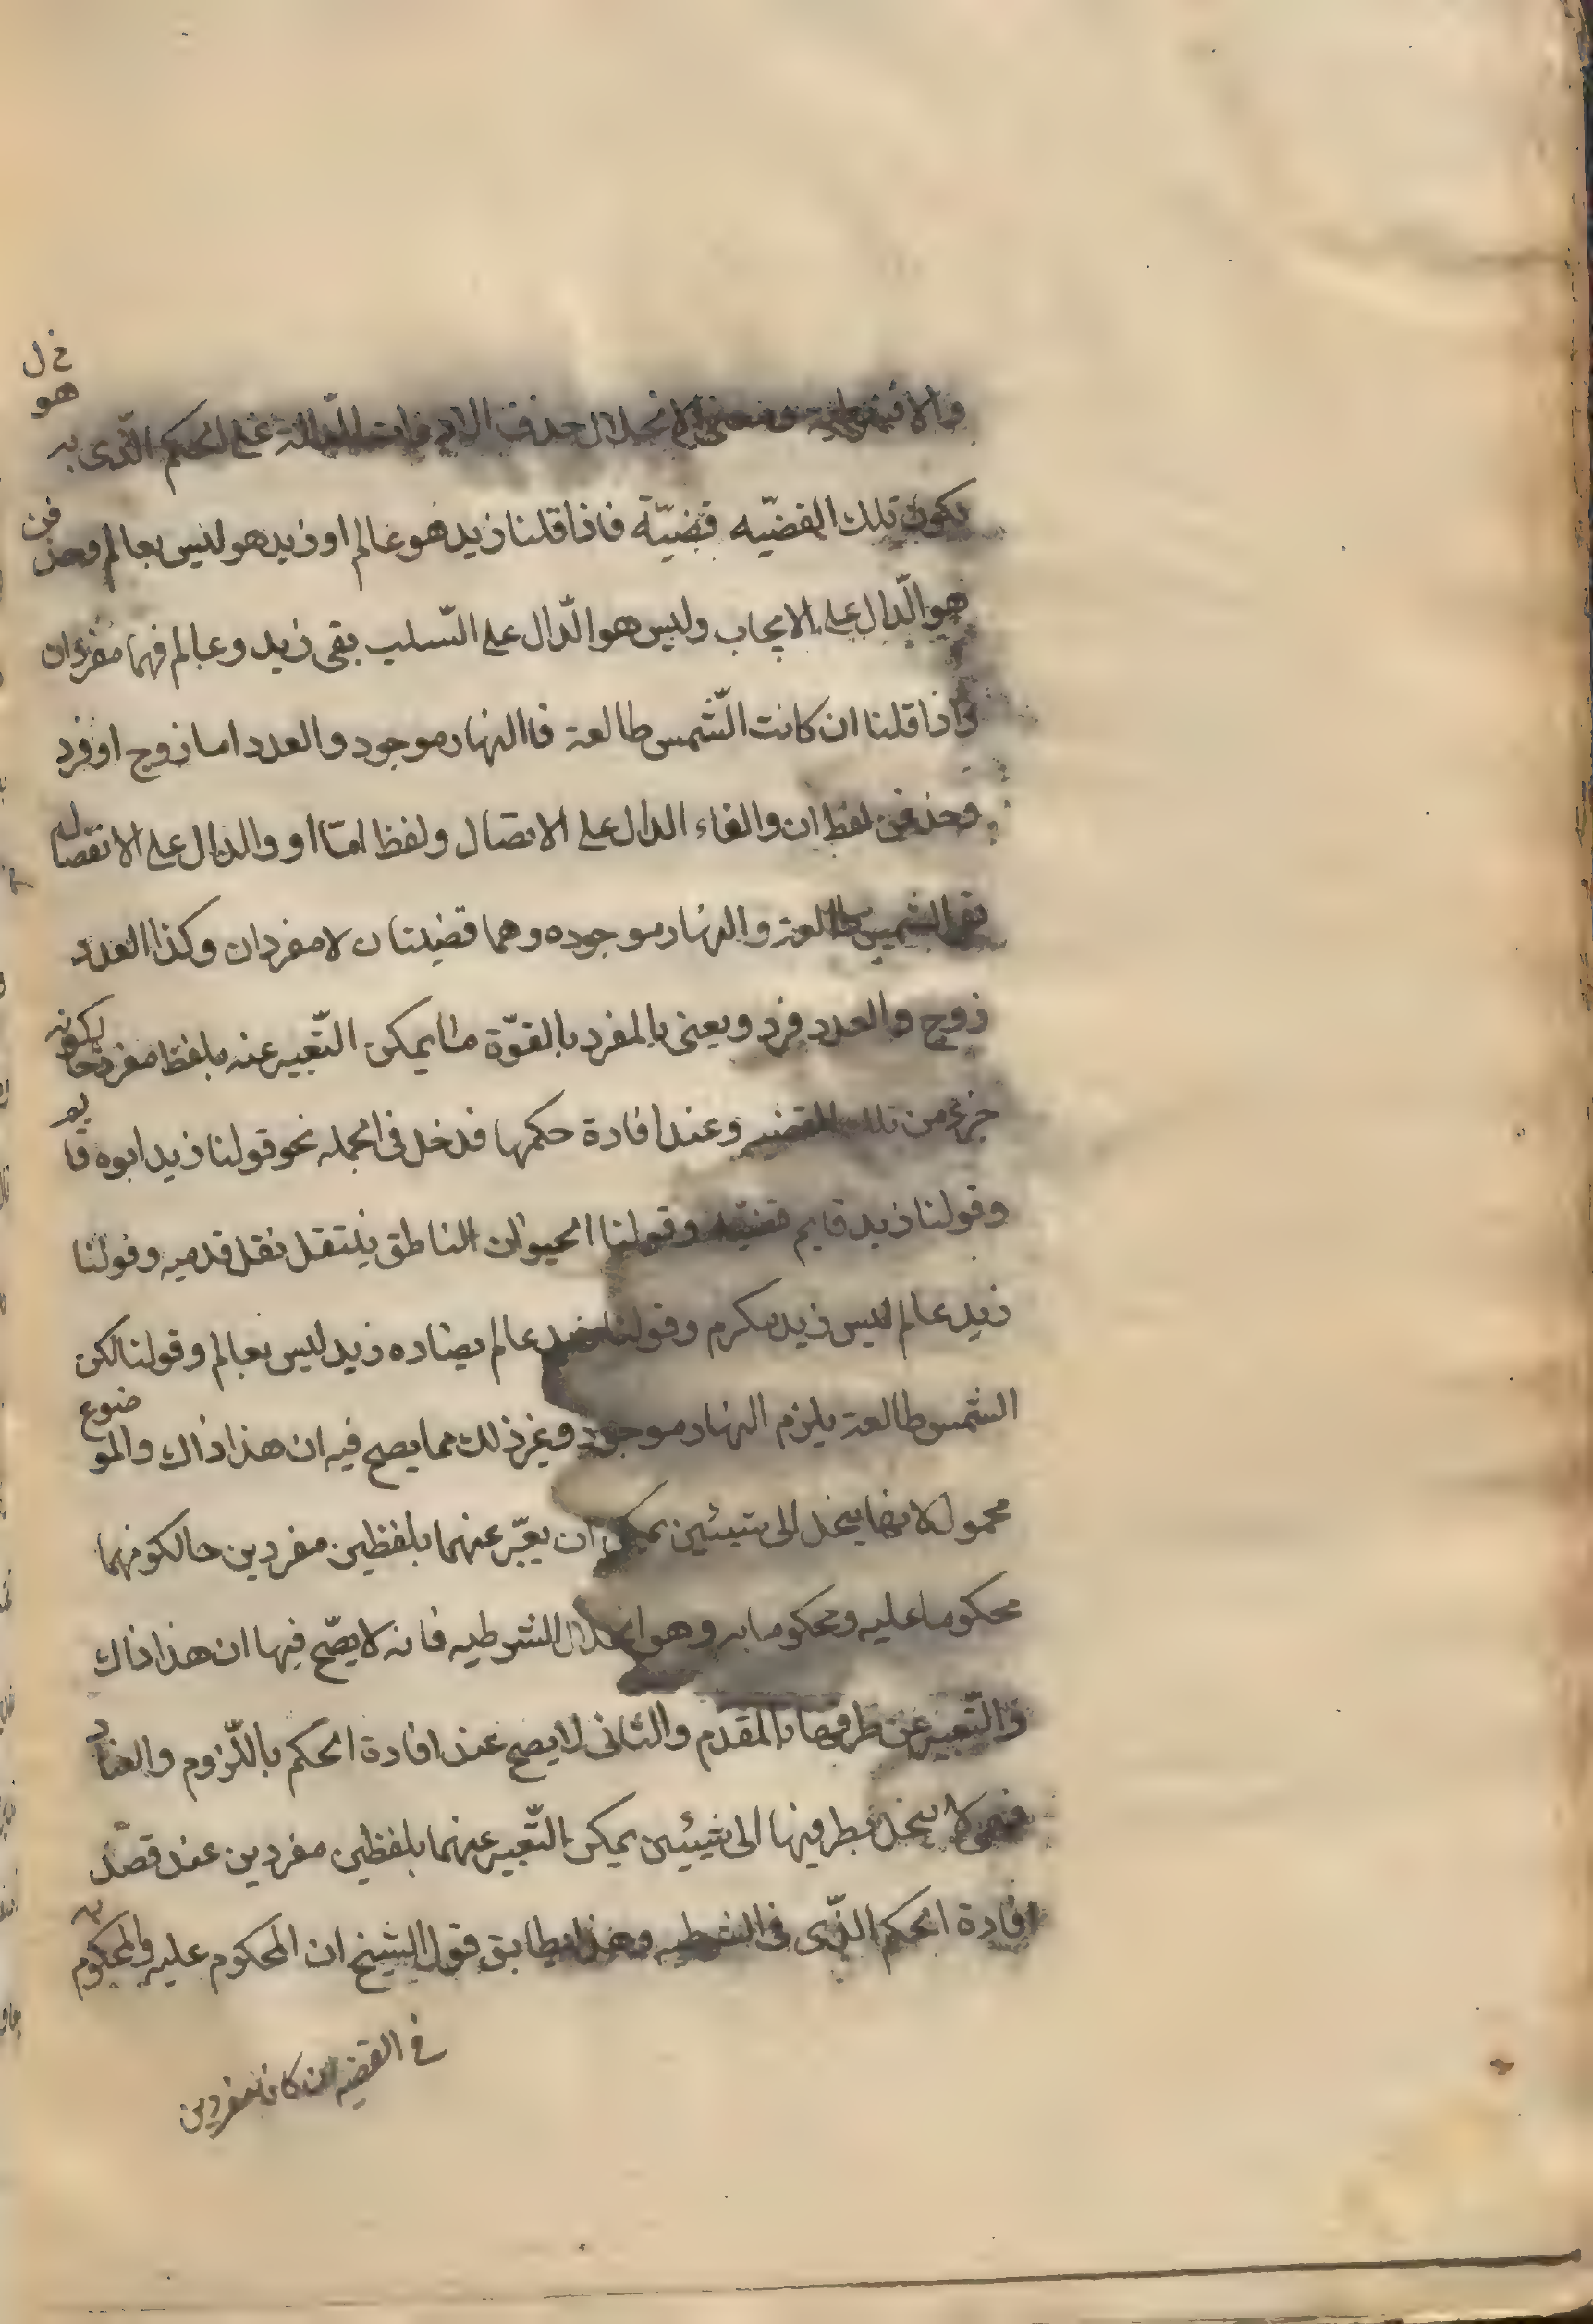 خ ل
هو
والا فشرطية ومعنى الانحلال حذف الادوات الدالة على الحكم الذى به
يكون تلك القضيّه قضيّة فاذا قلنا زيد هو عالم او زيد هو ليس بعالم وحذفن
هو الدّال على الايجاب وليس هو الدّال على السّلب بقى زيد وعالم فهما مفردان
واذا قلنا ان كانت الشّمس طالعة فاالنهار موجود والعدد اما زوج او فرد
وحذفن لفظ ان والفاء الدال على الاتصال ولفظ امّا او والدال على الانفصال
بقى الشمس طالعة والنهار موجوده وهما قضيتان لا مفردان وكذا العدد
زوج والعدد فرد ويعنى بالمفرد بالقوّة ما يمكن التّعبير عنه بلفظ مفرد حا لكونه
جزء من تلك القضيه وعند افادة حكمها فدخل فى الجمله نحو قولنا زيد ابوه قايم
وقولنا زيد قايم قضيّة وقولنا الحيوان الناطق ينتقل نقل قدميه وقولنا
زيد عالم ليس زيد بكرم وقولنا زيد عالم يضاده زيد ليس بعالم وقولنا لكن
الشمس طالعة يلزم النهار موجود وغير ذلك مما يصح فيه ان هذا ذاك والموضوع
محمول لانها ينحل الى شيئين يمكن ان يعبّر عنهما بلفظين مفردين حالكونهما
محكوما عليه ومحكوما به وهو انحلال الشرطيه فانه لا يصّح فيها ان هذا ذاك
والتّعبير عن طرفيها بالمقدم والثانى لا يصح عند افادة الحكم باللّزوم والعناد
فهى لا ينحل بطرفيها الى شيئين يمكن التّعبير عنهما بلفظين مفردين عند قصد
افادة الحكم الذّى فى الشرطيه وهذا يطابق قول الشيخ ان المحكوم عليه والمحكوم به
فى القضيه ان كانا مفردين